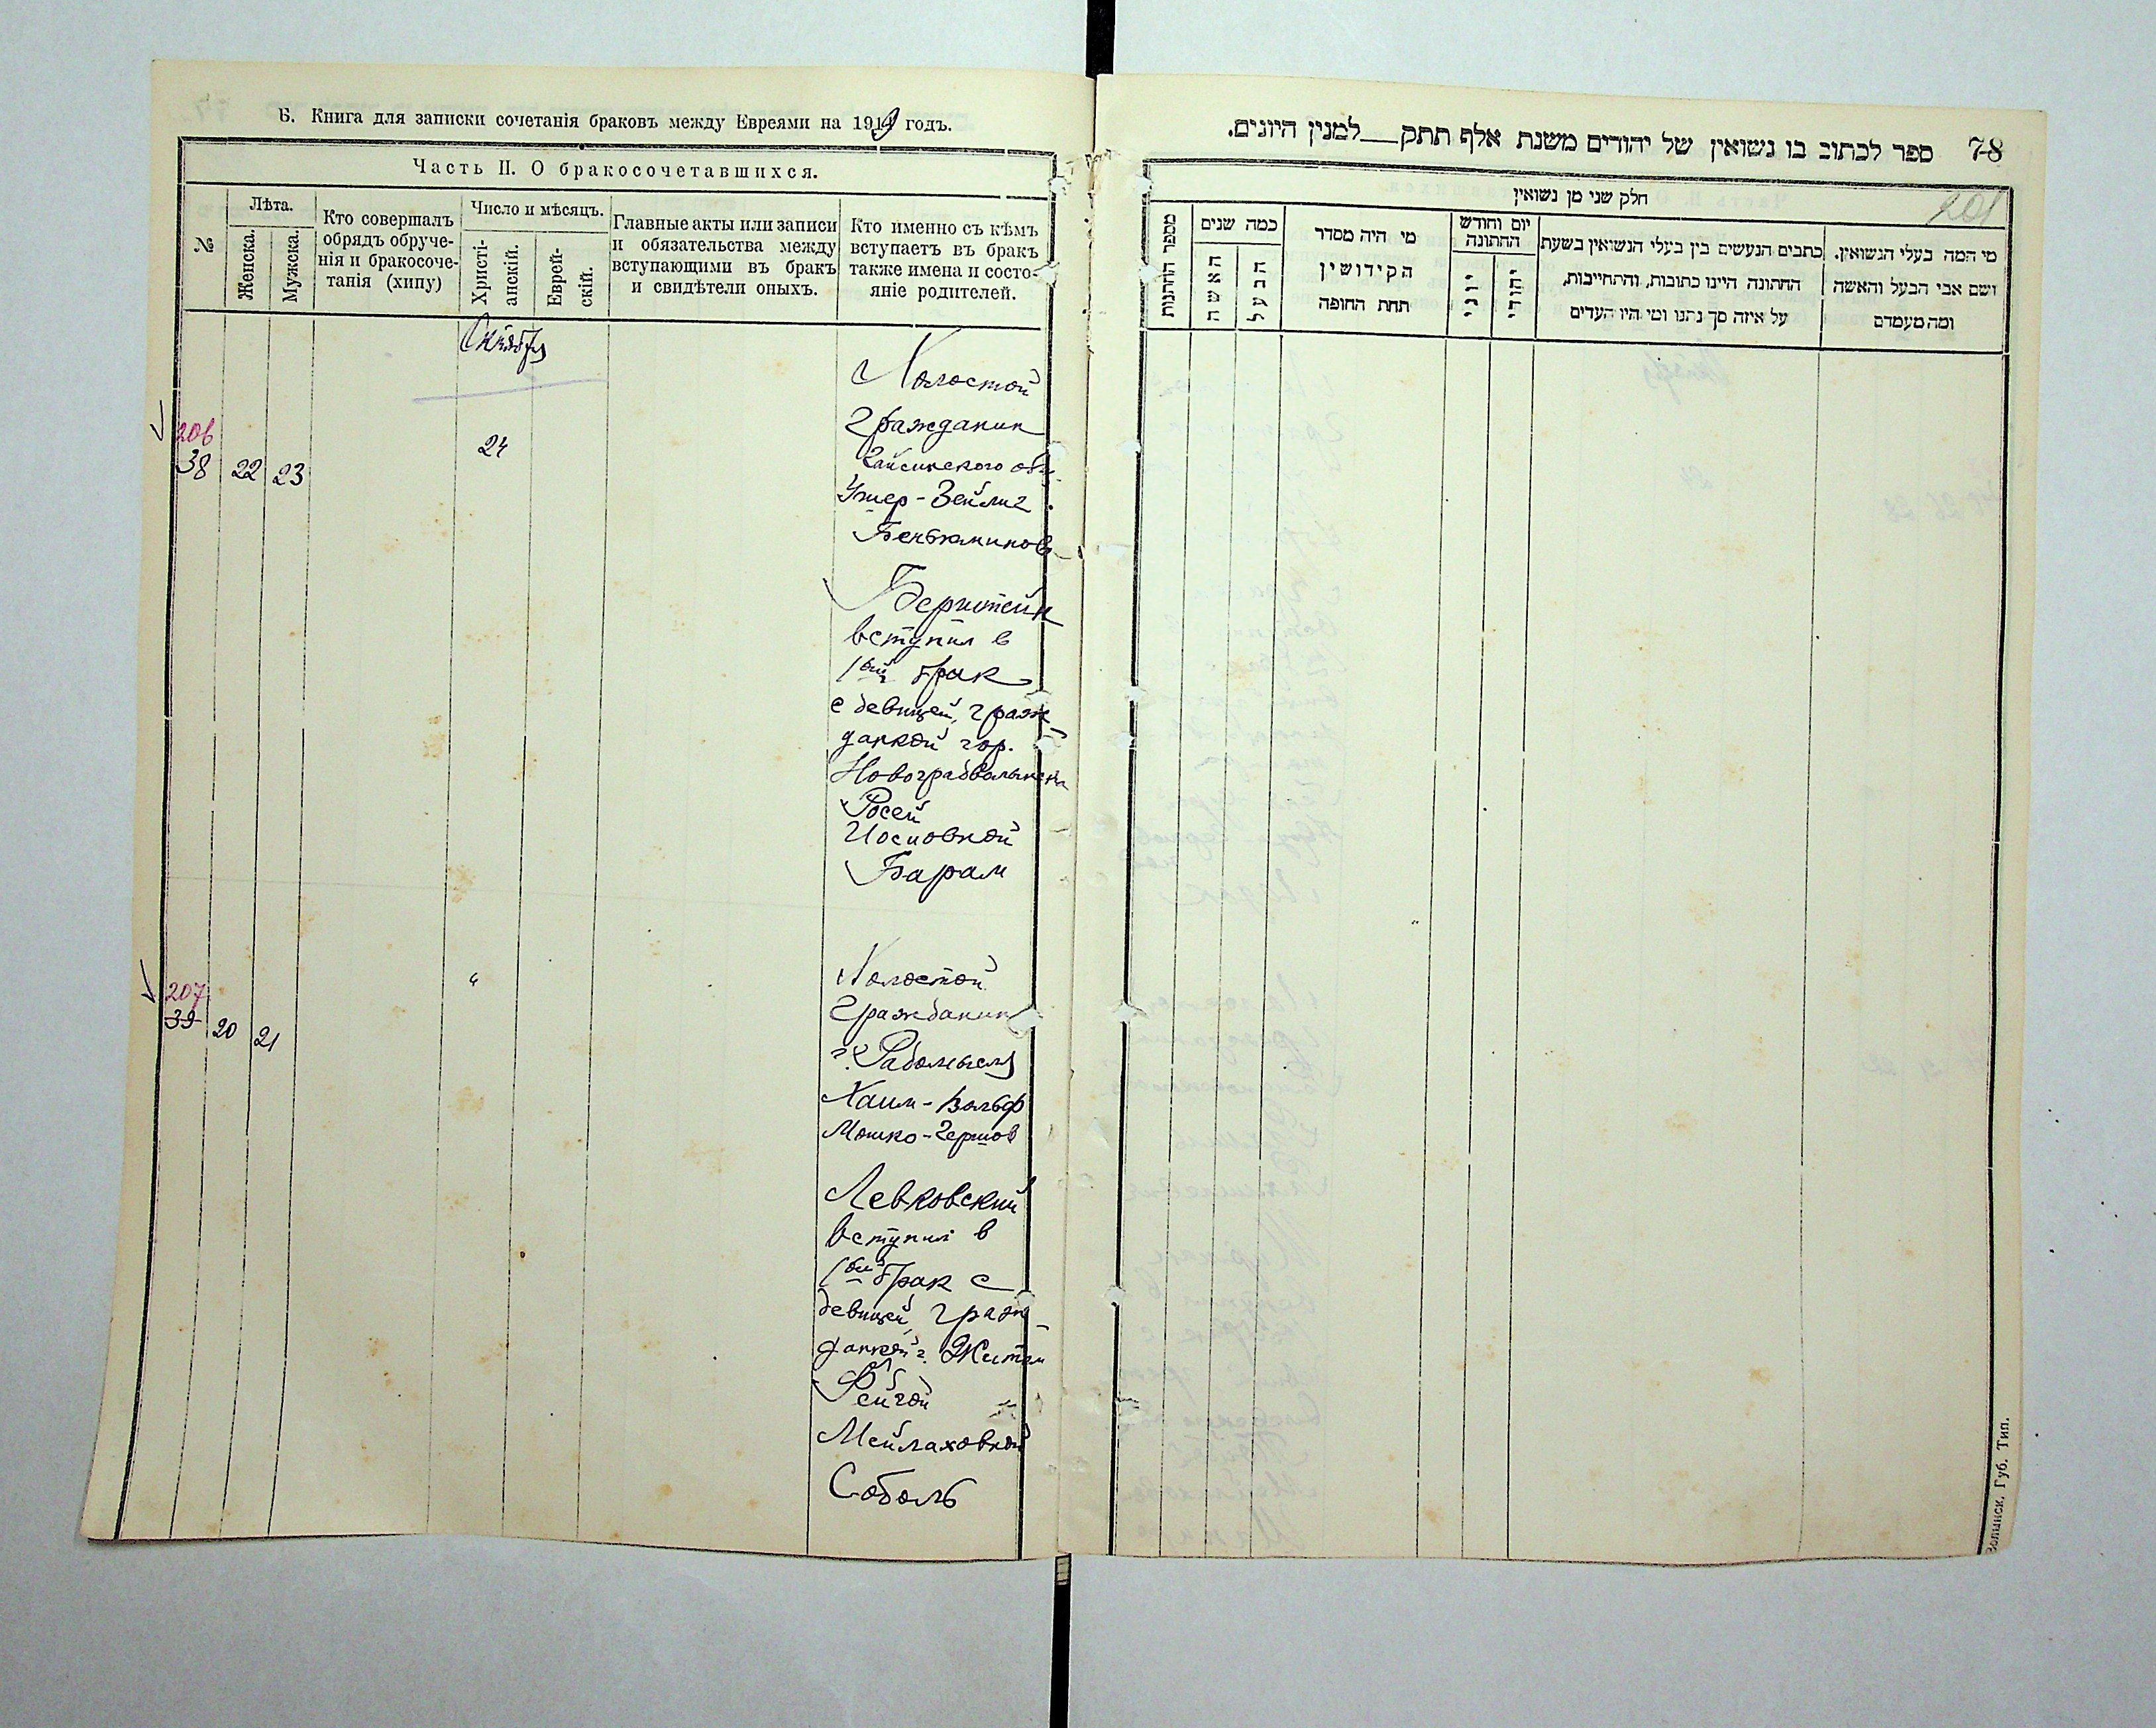 Б. Книга для записки сочетанія браковъ между Евреями на 1919 годъ.
Часть II. О бракосочетавшихся.
№
Лѣта.
Женска.
Мужска.
Кто совершалъ
обрядъ обруче-
нія и бракосоче-
танія (хипу)
Число и мѣсяцъ.
Христі-
анскій.
Еврей-
скій.
Главные акты или записи
и обязательства между
вступающими въ бракъ
и свидѣтели оныхъ.
Кто именно съ кѣмъ
вступаетъ въ бракъ
также имена и состо-
яніе родителей.
Октябрь
206
38 22 23
24
Холостой
гражданин
Гайсинского общ.
Ушер-Зейлиг
Беньяминов
Бернштейн
вступил в
1ый брак
с девицей, граж
данкой гор.
Новоградволынска
Росей
Иосиовной
Барам
207
39 20 21
"
Холостой
гражданин
г. Радомысля
Хаим-Вольф
Мошко-Гершов
Левковский
вступил в
1ый брак с
девицей, граж
данкой г. Житом
Фейгой
Мейлаховной
Соболь
ספר לכתוב בו נשואין של יהודים משנת אלף תתק__למנין היונים.
78
201
חלק שני מן נשואין
מספר החתונות
כמה שנים
האשה
הבעל
מי היה מסדר
הקידושין
תחת החופה
יום וחודש
החתונה
יוני
יהודי
כתבים הנעשים בין בעלי הנשואין בשעת
החתונה היינו כתובות, והתחייבות,
על איזה סך נתנו ומי היו העדים
מי המה בעלי הנשואין.
ושם אבי הבעל והאשה
ומה מעמדם
Волынск. Губ. Тип.